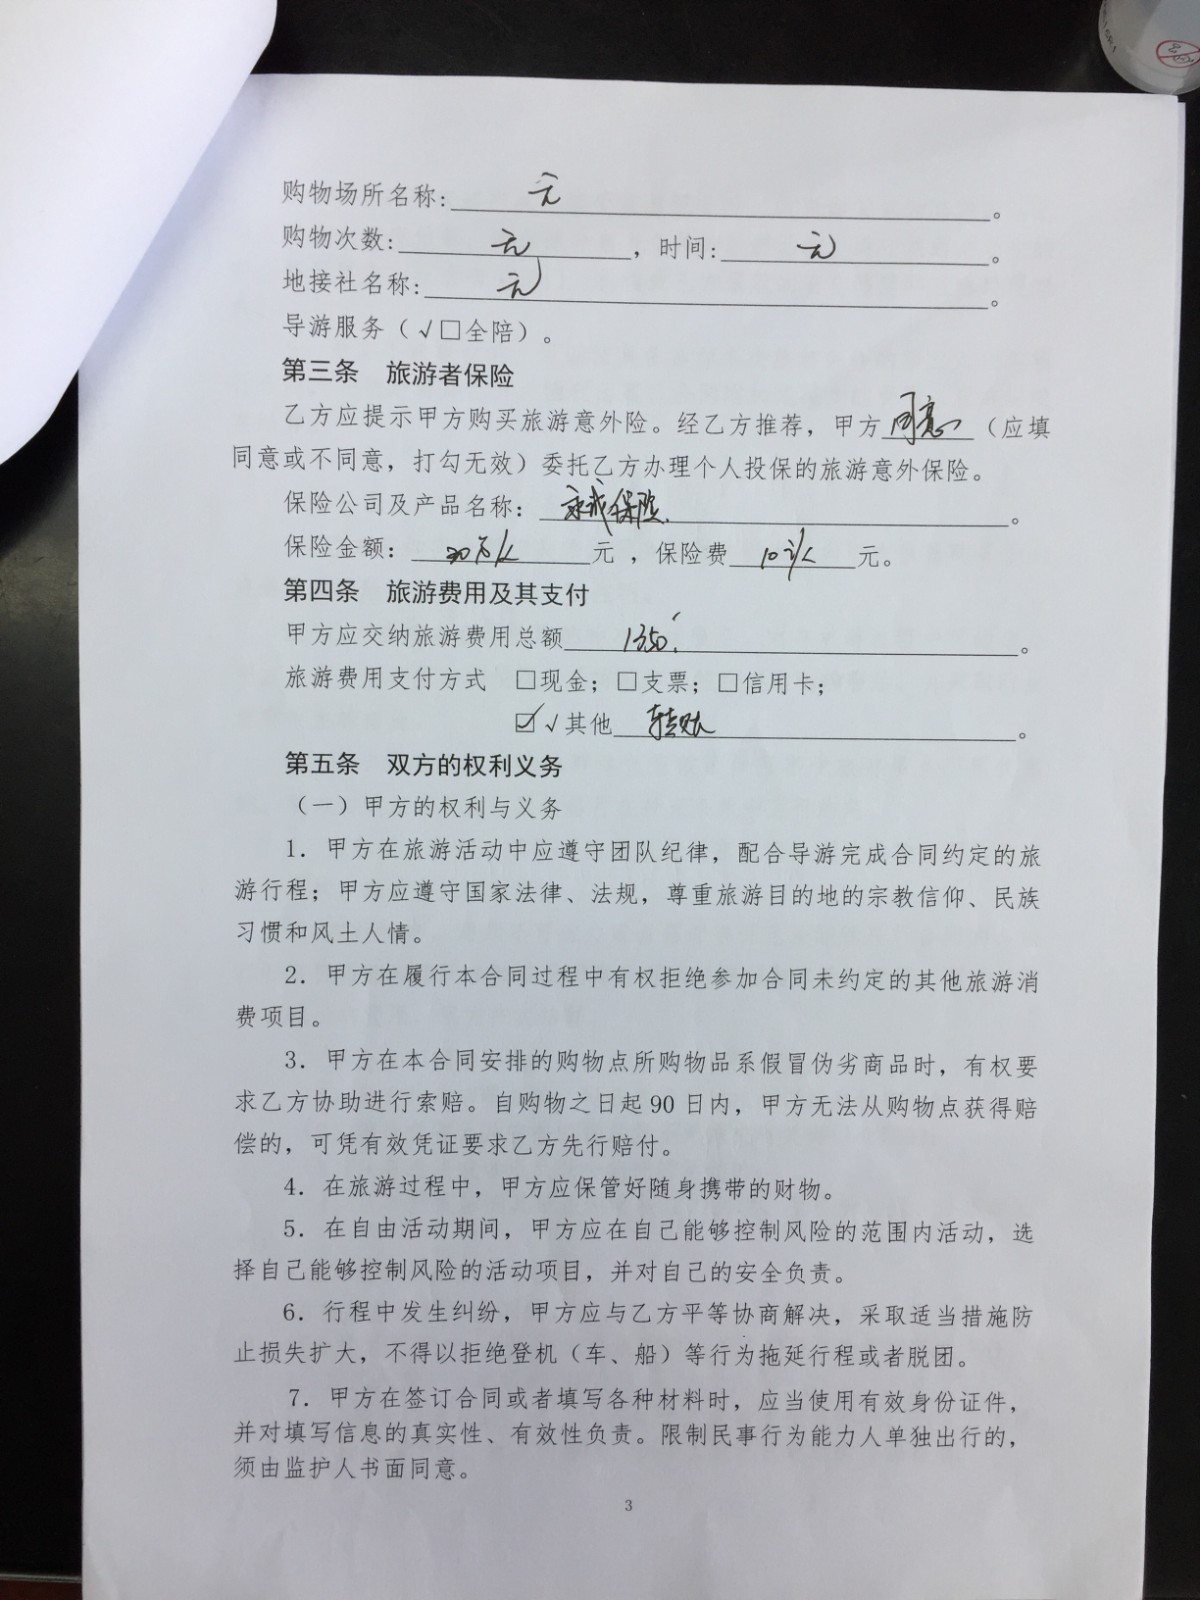 购物场所名称:无。
购物次数:无,时间:无。
地接社名称:无。
导游服务(√□全陪)。
第三条 旅游者保险
乙方应提示甲方购买旅游意外险。经乙方推荐,甲方同意(应填
同意或不同意,打勾无效)委托乙方办理个人投保的旅游意外保险。
保险公司及产品名称:永诚保险。
保险金额:30万/人元,保险费10元/人元。
第四条 旅游费用及其支付
甲方应交纳旅游费用总额1350。
旅游费用支付方式 □现金;□支票;□信用卡;
☑√其他转账。
第五条 双方的权利义务
(一)甲方的权利与义务
1. 甲方在旅游活动中应遵守团队纪律,配合导游完成合同约定的旅
游行程;甲方应遵守国家法律、法规,尊重旅游目的地的宗教信仰、民族
习惯和风土人情。
2. 甲方在履行本合同过程中有权拒绝参加合同未约定的其他旅游消
费项目。
3. 甲方在本合同安排的购物点所购物品系假冒伪劣商品时,有权要
求乙方协助进行索赔。自购物之日起 90 日内,甲方无法从购物点获得赔
偿的,可凭有效凭证要求乙方先行赔付。
4. 在旅游过程中,甲方应保管好随身携带的财物。
5. 在自由活动期间,甲方应在自己能够控制风险的范围内活动,选
择自己能够控制风险的活动项目,并对自己的安全负责。
6. 行程中发生纠纷,甲方应与乙方平等协商解决,采取适当措施防
止损失扩大,不得以拒绝登机(车、船)等行为拖延行程或者脱团。
7. 甲方在签订合同或者填写各种材料时,应当使用有效身份证件,
并对填写信息的真实性、有效性负责。限制民事行为能力人单独出行的,
须由监护人书面同意。
3